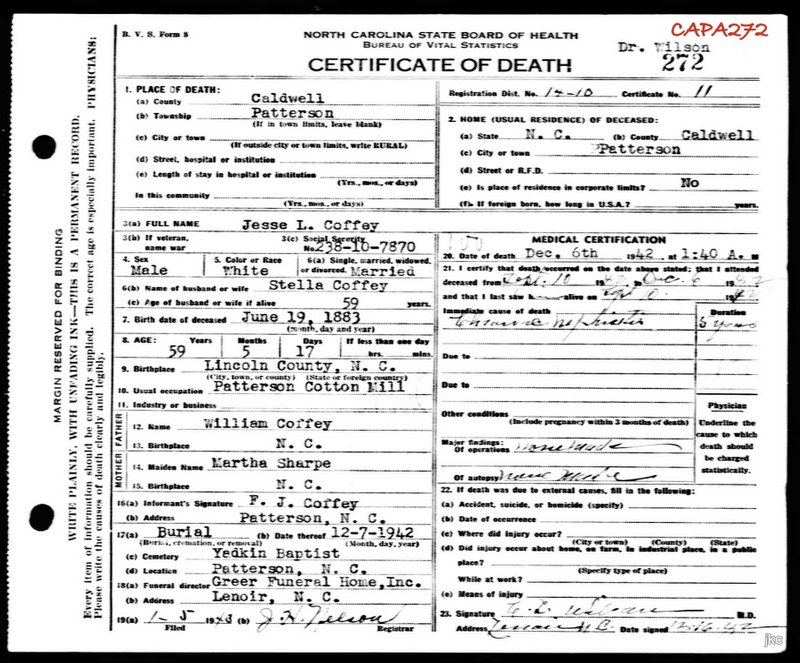 B. V. S. Form 8
NORTH CAROLINA STATE BOARD OF HEALTH
BUREAU OF VITAL STATISTICS
CERTIFICATE OF DEATH
CAPA272
Dr. Wilson
272
MARGIN RESERVED FOR BINDING
WRITE PLAINLY, WITH UNFADING INK—THIS IS A PERMANENT RECORD.
Every item of information should be carefully supplied. The correct age is especially important. PHYSICIANS:
Please write the causes of death clearly and legibly.
1. PLACE OF DEATH:
(a) County Caldwell
(b) Township Patterson
(If in town limits, leave blank)
(c) City or town
(If outside city or town limits, write RURAL)
(d) Street, hospital or institution
(e) Length of stay in hospital or institution
(Yrs., mos., or days)
In this community
(Yrs., mos., or days)
Registration Dist. No. 14-10 Certificate No. 11
2. HOME (USUAL RESIDENCE) OF DECEASED:
(a) State N. C. (b) County Caldwell
(c) City or town Patterson
(d) Street or R.F.D.
(e) Is place of residence in corporate limits? No
(f) If foreign born, how long in U.S.A.? years.
3(a) FULL NAME Jesse L. Coffey
3(b) If veteran, name war
3(c) Social Security No. 238-10-7870
4. Sex Male
5. Color or Race White
6(a) Single, married, widowed, or divorced. Married
6(b) Name of husband or wife Stella Coffey
(c) Age of husband or wife if alive 59 years.
7. Birth date of deceased June 19, 1883
(month, day and year)
8. AGE: Years Months Days If less than one day
59 5 17 hrs. mins.
9. Birthplace Lincoln County, N. C.
(City, town, or county) (State or foreign country)
10. Usual occupation Patterson Cotton Mill
11. Industry or business
FATHER
12. Name William Coffey
13. Birthplace N. C.
MOTHER
14. Maiden Name Martha Sharpe
15. Birthplace N. C.
16(a) Informant's Signature F. J. Coffey
(b) Address Patterson, N. C.
17(a) Burial (b) Date thereof 12-7-1942
(Burial, cremation, or removal) (Month, day, year)
(c) Cemetery Yedkin Baptist
(d) Location Patterson, N. C.
18(a) Funeral director Greer Funeral Home,Inc.
(b) Address Lenoir, N. C.
19(a) 1-5 1943 (b) J. H. Nelson
Filed Registrar
MEDICAL CERTIFICATION
20. Date of death Dec. 6th 1942 at 1:40 A. M
21. I certify that death occurred on the date above stated; that I attended
deceased from Sept. 10 19 to Dec. 6 1942
and that I last saw h alive on 1942
Immediate cause of death Duration
Chronic Nephritis 5 years
Due to
Due to
Other conditions
(Include pregnancy within 3 months of death)
Major findings:
Of operations None made
Of autopsy none made
Physician
Underline the cause to which death should be charged statistically.
22. If death was due to external causes, fill in the following:
(a) Accident, suicide, or homicide (specify)
(b) Date of occurrence
(c) Where did injury occur?
(City or town) (County) (State)
(d) Did injury occur about home, on farm, in industrial place, in a public
place?
(Specify type of place)
While at work?
(e) Means of injury
23. Signature M.D.
Address Lenoir N.C. Date signed 12-16-42
jkc